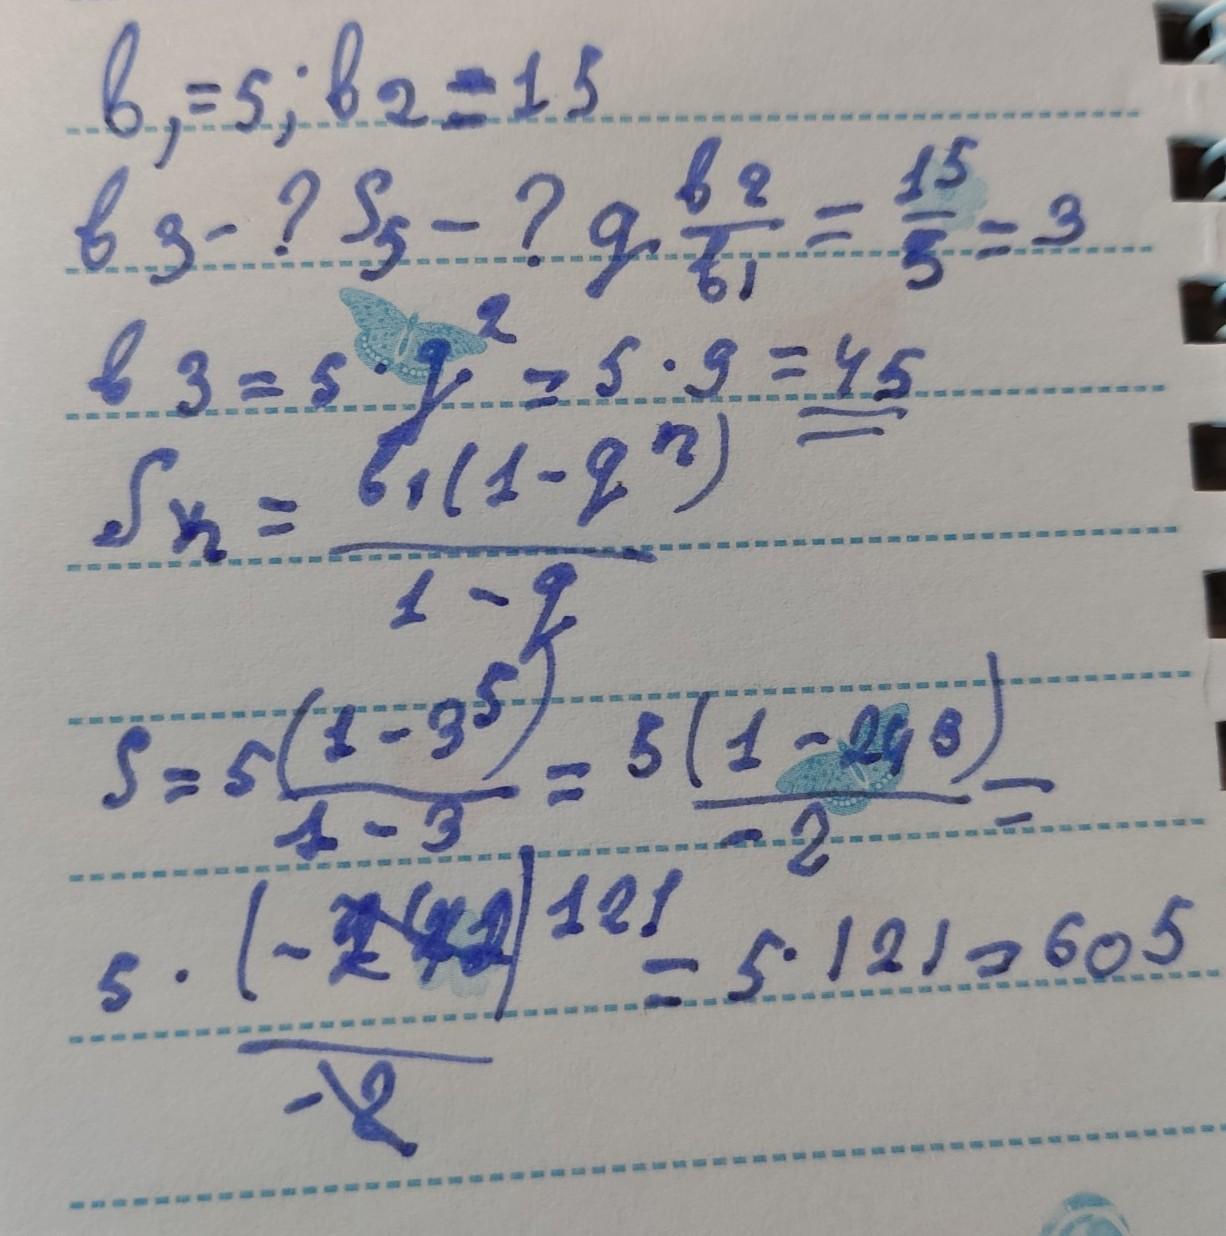 b₁ = 5; b2 = 15
b3 - ? S₅ - ? q. b2/b₁ = 15/5 = 3
b3 = 5 · q² = 5 · 9 = 45
Sn = b₁(1 - qⁿ)/1 - q
S = 5(1 - 3⁵)/1 - 3 = 5(1 - 243)/-2 =
5 · (-242)/-2 121 = 5 · 121 = 605